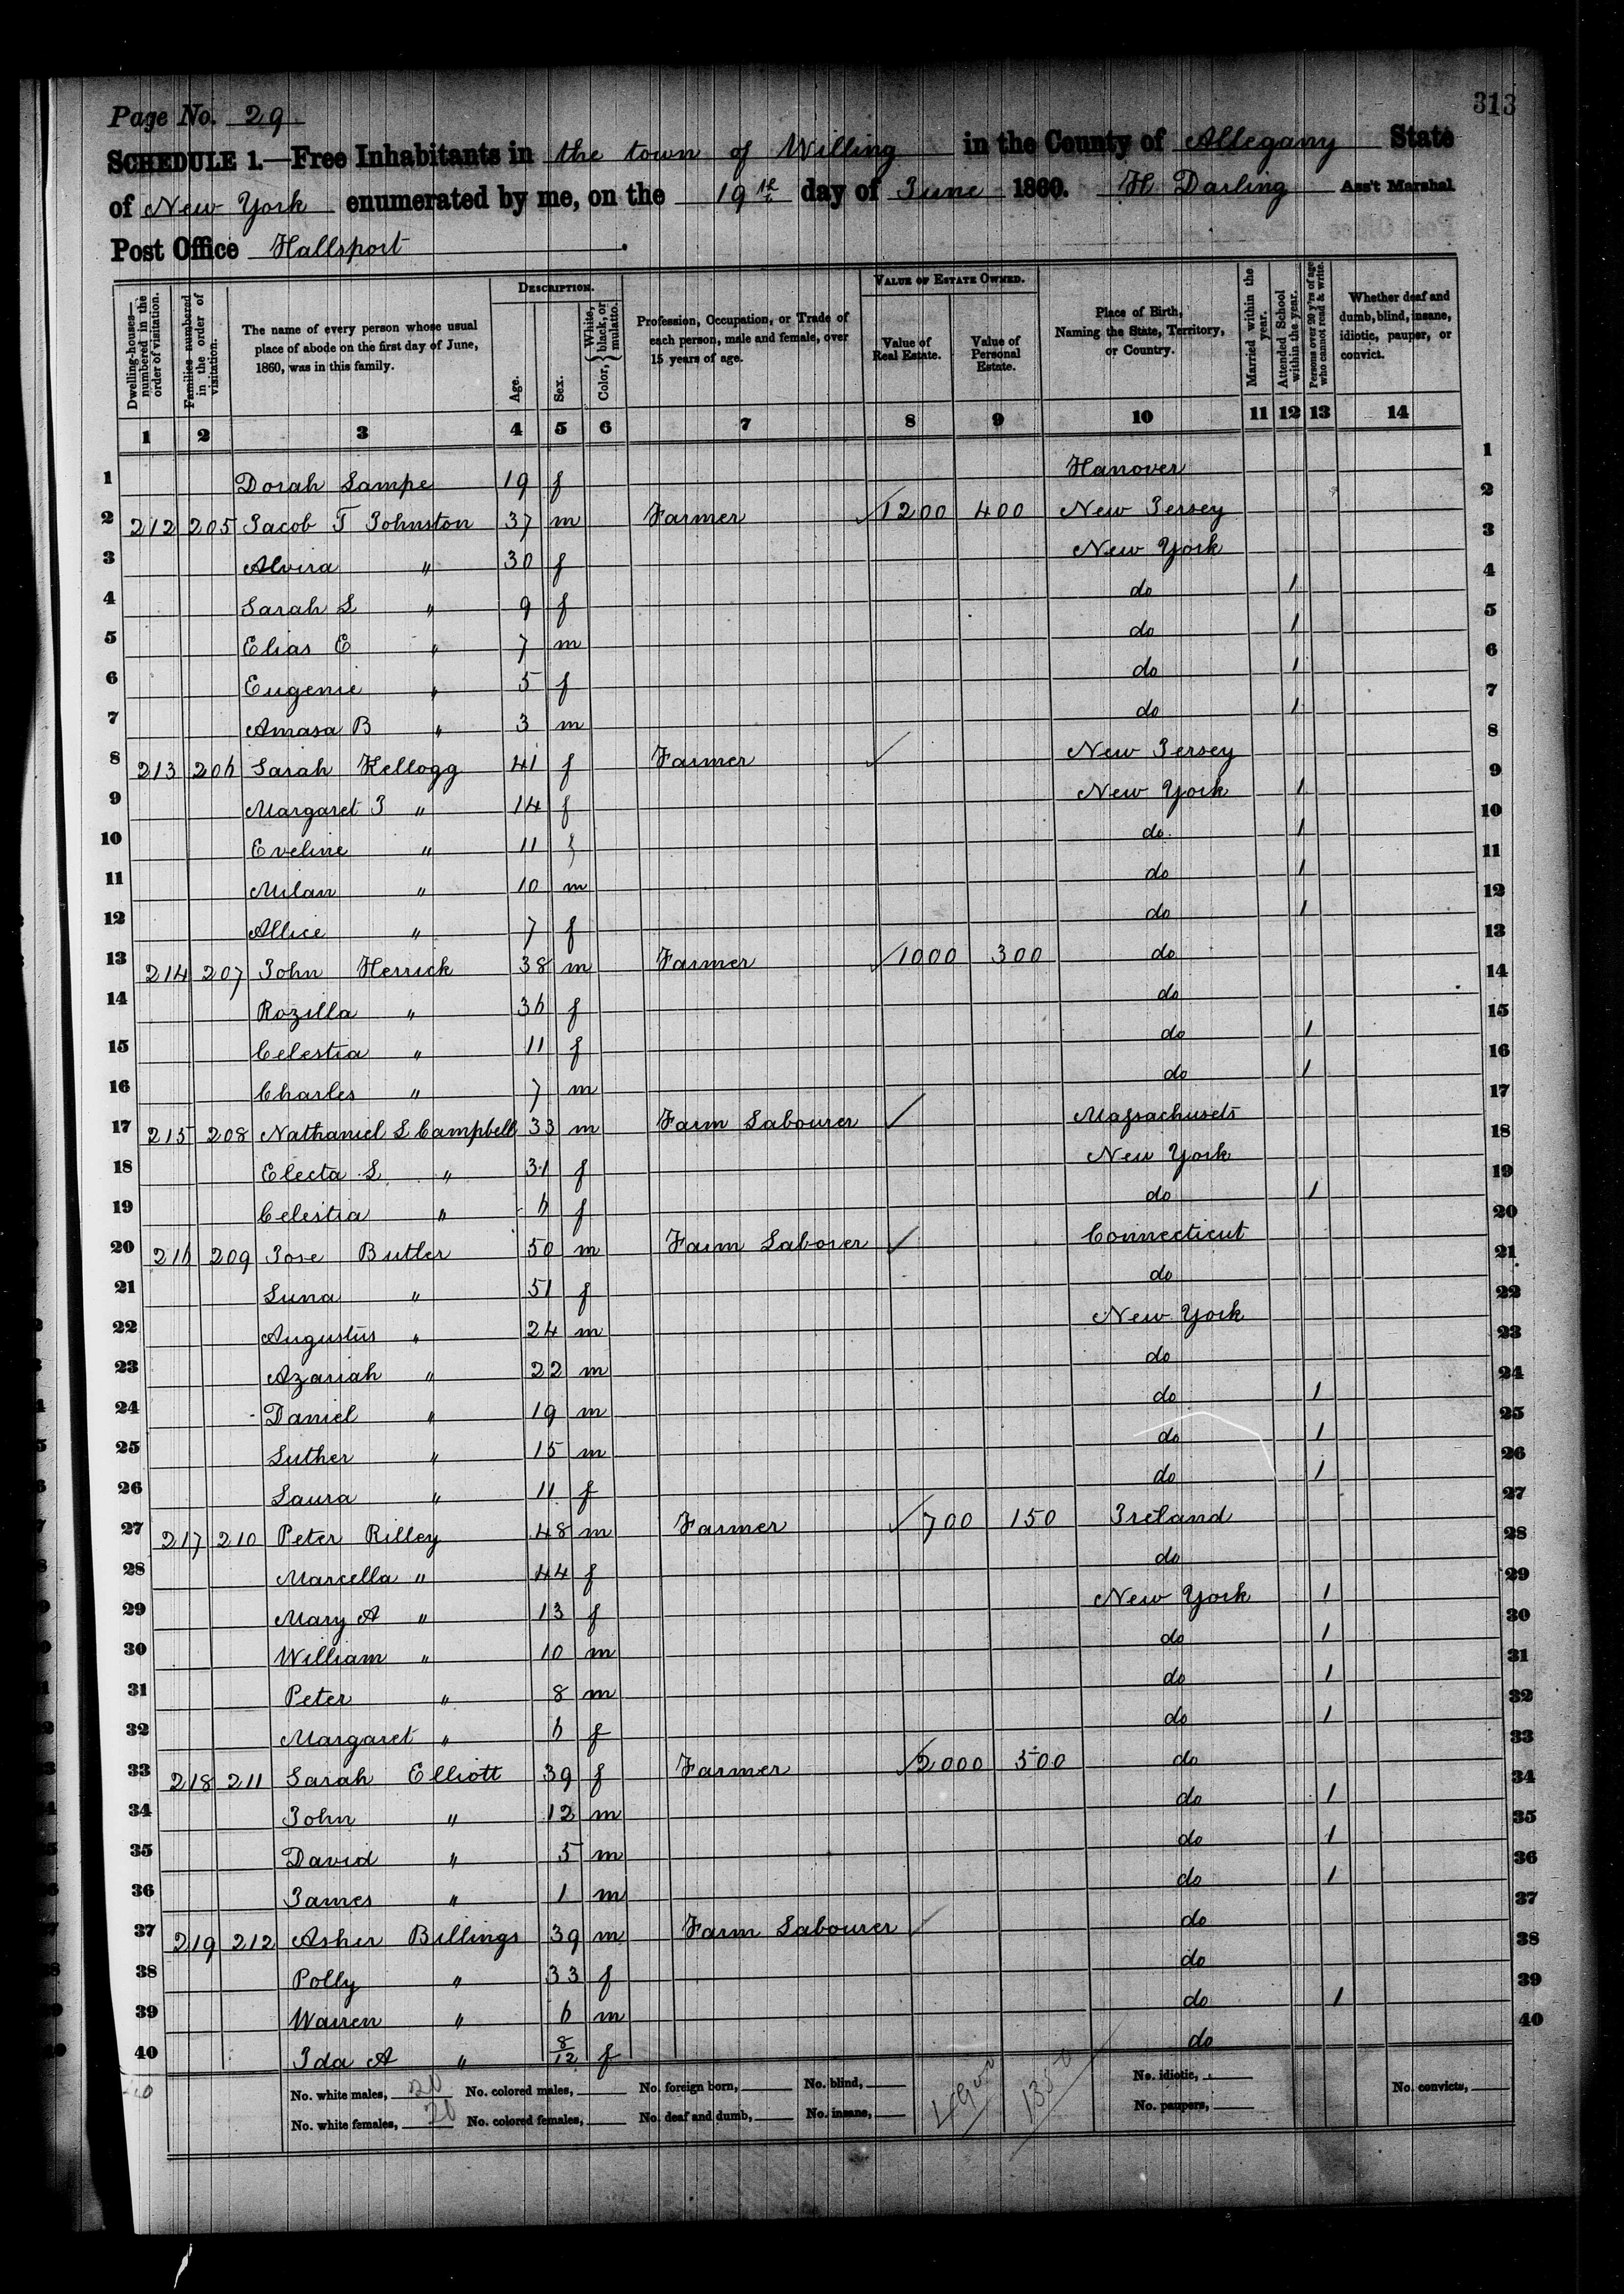 313
Page No. 29
SCHEDULE 1.—Free Inhabitants in the town of Willing in the County of Allegany State
of New York enumerated by me, on the 19th day of June 1860. H. Darling Ass't Marshal
Post Office Hallsport.
DESCRIPTION. VALUE OF ESTATE OWNED.
Dwelling-houses—numbered in the order of visitation. Families numbered in the order of visitation. The name of every person whose usual place of abode on the first day of June, 1860, was in this family. Age. Sex. Color, { White, black, or mulatto. Profession, Occupation, or Trade of each person, male and female, over 15 years of age. Value of Real Estate. Value of Personal Estate. Place of Birth, Naming the State, Territory, or Country. Married within the year. Attended School within the year. Persons over 20 y'rs of age who cannot read & write. Whether deaf and dumb, blind, insane, idiotic, pauper, or convict.
1 2 3 4 5 6 7 8 9 10 11 12 13 14
1 Dorah Lampe 19 f Hanover 1
2 212 205 Jacob T Johnston 37 m Farmer 1200 400 New Jersey 2
3 Alvira " 30 f New York 3
4 Sarah L " 9 f do 1 4
5 Elias E " 7 m do 1 5
6 Eugenie " 5 f do 1 6
7 Amasa B " 3 m do 1 7
8 213 206 Sarah Kellogg 41 f Farmer New Jersey 8
9 Margaret J " 14 f New York 1 9
10 Eveline " 11 f do. 1 10
11 Milan " 10 m do 1 11
12 Allice " 7 f do 1 12
13 214 207 John Herrick 38 m Farmer 1000 300 do 13
14 Rozilla " 36 f do 14
15 Celestia " 11 f do 1 15
16 Charles " 7 m do 1 16
17 215 208 Nathaniel L Campbell 33 m Farm Labourer Massachusets 17
18 Electa L " 31 f New York 18
19 Celestia " 6 f do 1 19
20 216 209 Jose Butler 50 m Farm Laborer Connecticut 20
21 Luna " 51 f do 21
22 Augustus " 24 m New York 22
23 Azariah " 22 m do 23
24 Daniel " 19 m do 1 24
25 Luther " 15 m do 1 25
26 Laura " 11 f do 1 26
27 217 210 Peter Rilley 48 m Farmer 700 150 Ireland 27
28 Marcella " 44 f do 28
29 Mary A " 13 f New York 1 29
30 William " 10 m do 1 30
31 Peter " 8 m do 1 31
32 Margaret " 6 f do 1 32
33 218 211 Sarah Elliott 39 f Farmer 2000 500 do 33
34 John " 12 m do 1 34
35 David " 5 m do 1 35
36 James " 1 m do 1 36
37 219 212 Asher Billings 39 m Farm Labourer do 37
38 Polly " 33 f do 38
39 Warren " 6 m do 1 39
40 Ida A " 8/12 f do 40
No. white males, 20 No. colored males, No. foreign born, No. blind, 4900 1350 No. idiotic, No. convicts,
No. white females, 20 No. colored females, No. deaf and dumb, No. insane, No. paupers,